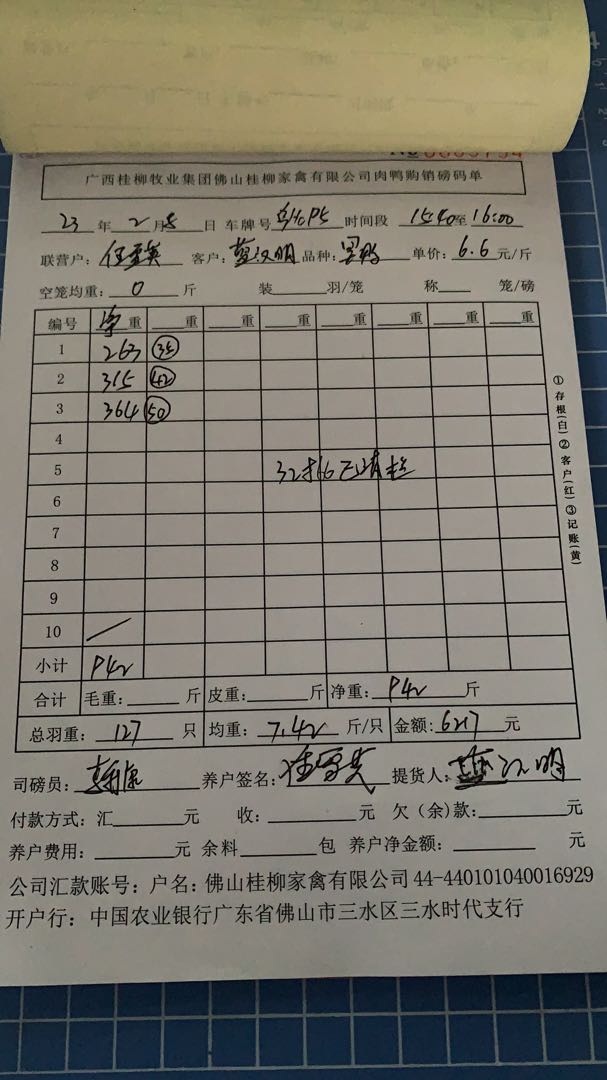 广西桂柳牧业集团佛山桂柳家禽有限公司肉鸭购销磅码单
23 年 2 月 8 日 车牌号 时间段 15:40 至 16:00
联营户: 客户: 蓝汉明 品种: 单价: 6.6 元/斤
空笼均重: 0 斤 装 羽/笼 称 笼/磅
编号 净重 重 重 重 重 重 重 重
1 263 35
2 315 42
3 364 50
4
5
6
7
8
9
10
小计 942
合计 毛重: 斤 皮重: 斤 净重: 942 斤
总羽重: 127 只 均重: 7.42 斤/只 金额: 6217 元
司磅员: 养户签名: 提货人: 蓝汉明
付款方式: 汇 元 收: 元 欠(余)款: 元
养户费用: 元 余料 包 养户净金额: 元
公司汇款账号: 户名: 佛山桂柳家禽有限公司 44-440101040016929
开户行: 中国农业银行广东省佛山市三水区三水时代支行
①存根(白)②客户(红)③记账(黄)